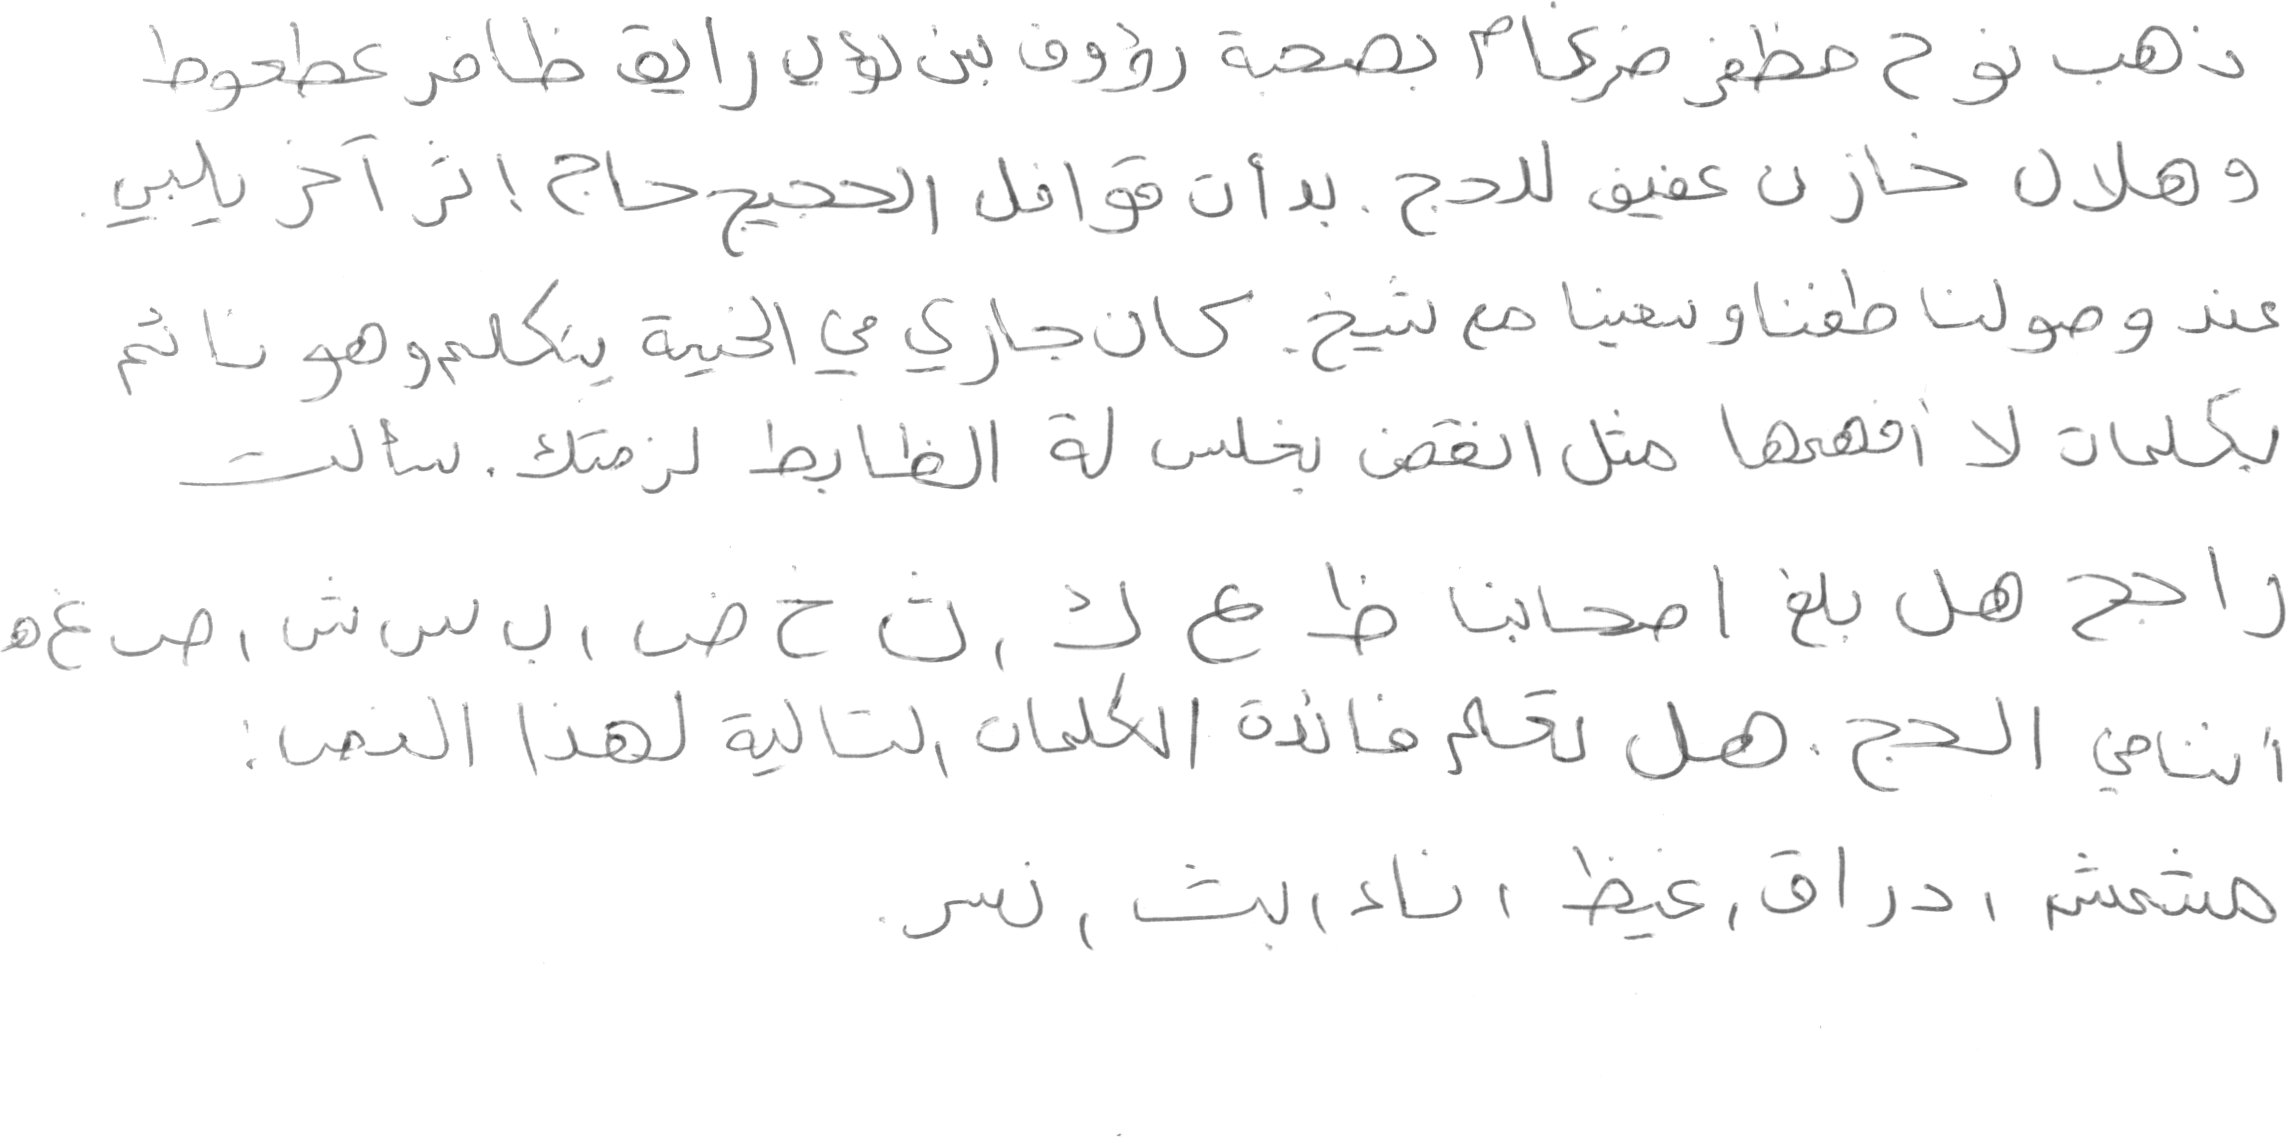 ذهب نوح مظفر ضرغام بصحبة رؤوف بن لؤي رايق ظافر عطعوط
وهلال خازن عفيف للحج. بدأت قوافل الحجيج حاج إثر آخر يلبي.
عند وصولنا طفنا وسعينا مع شيخ. كان جاري في الخيمة يتكلم وهو نائم
بكلمات لا أفهمها مثل انقض بخلس لة الظابط لزمتك. سألت
راجح هل بلغ اصحابنا ظ ع ك ، ث خ ض ، ب س ش ، ص غ ه
أثناء الحج. هل تعلم فائدة الكلمات التالية لهذا النص:
مشمش ، دراق ، غيظ ، ناء ، لبث ، نسر.